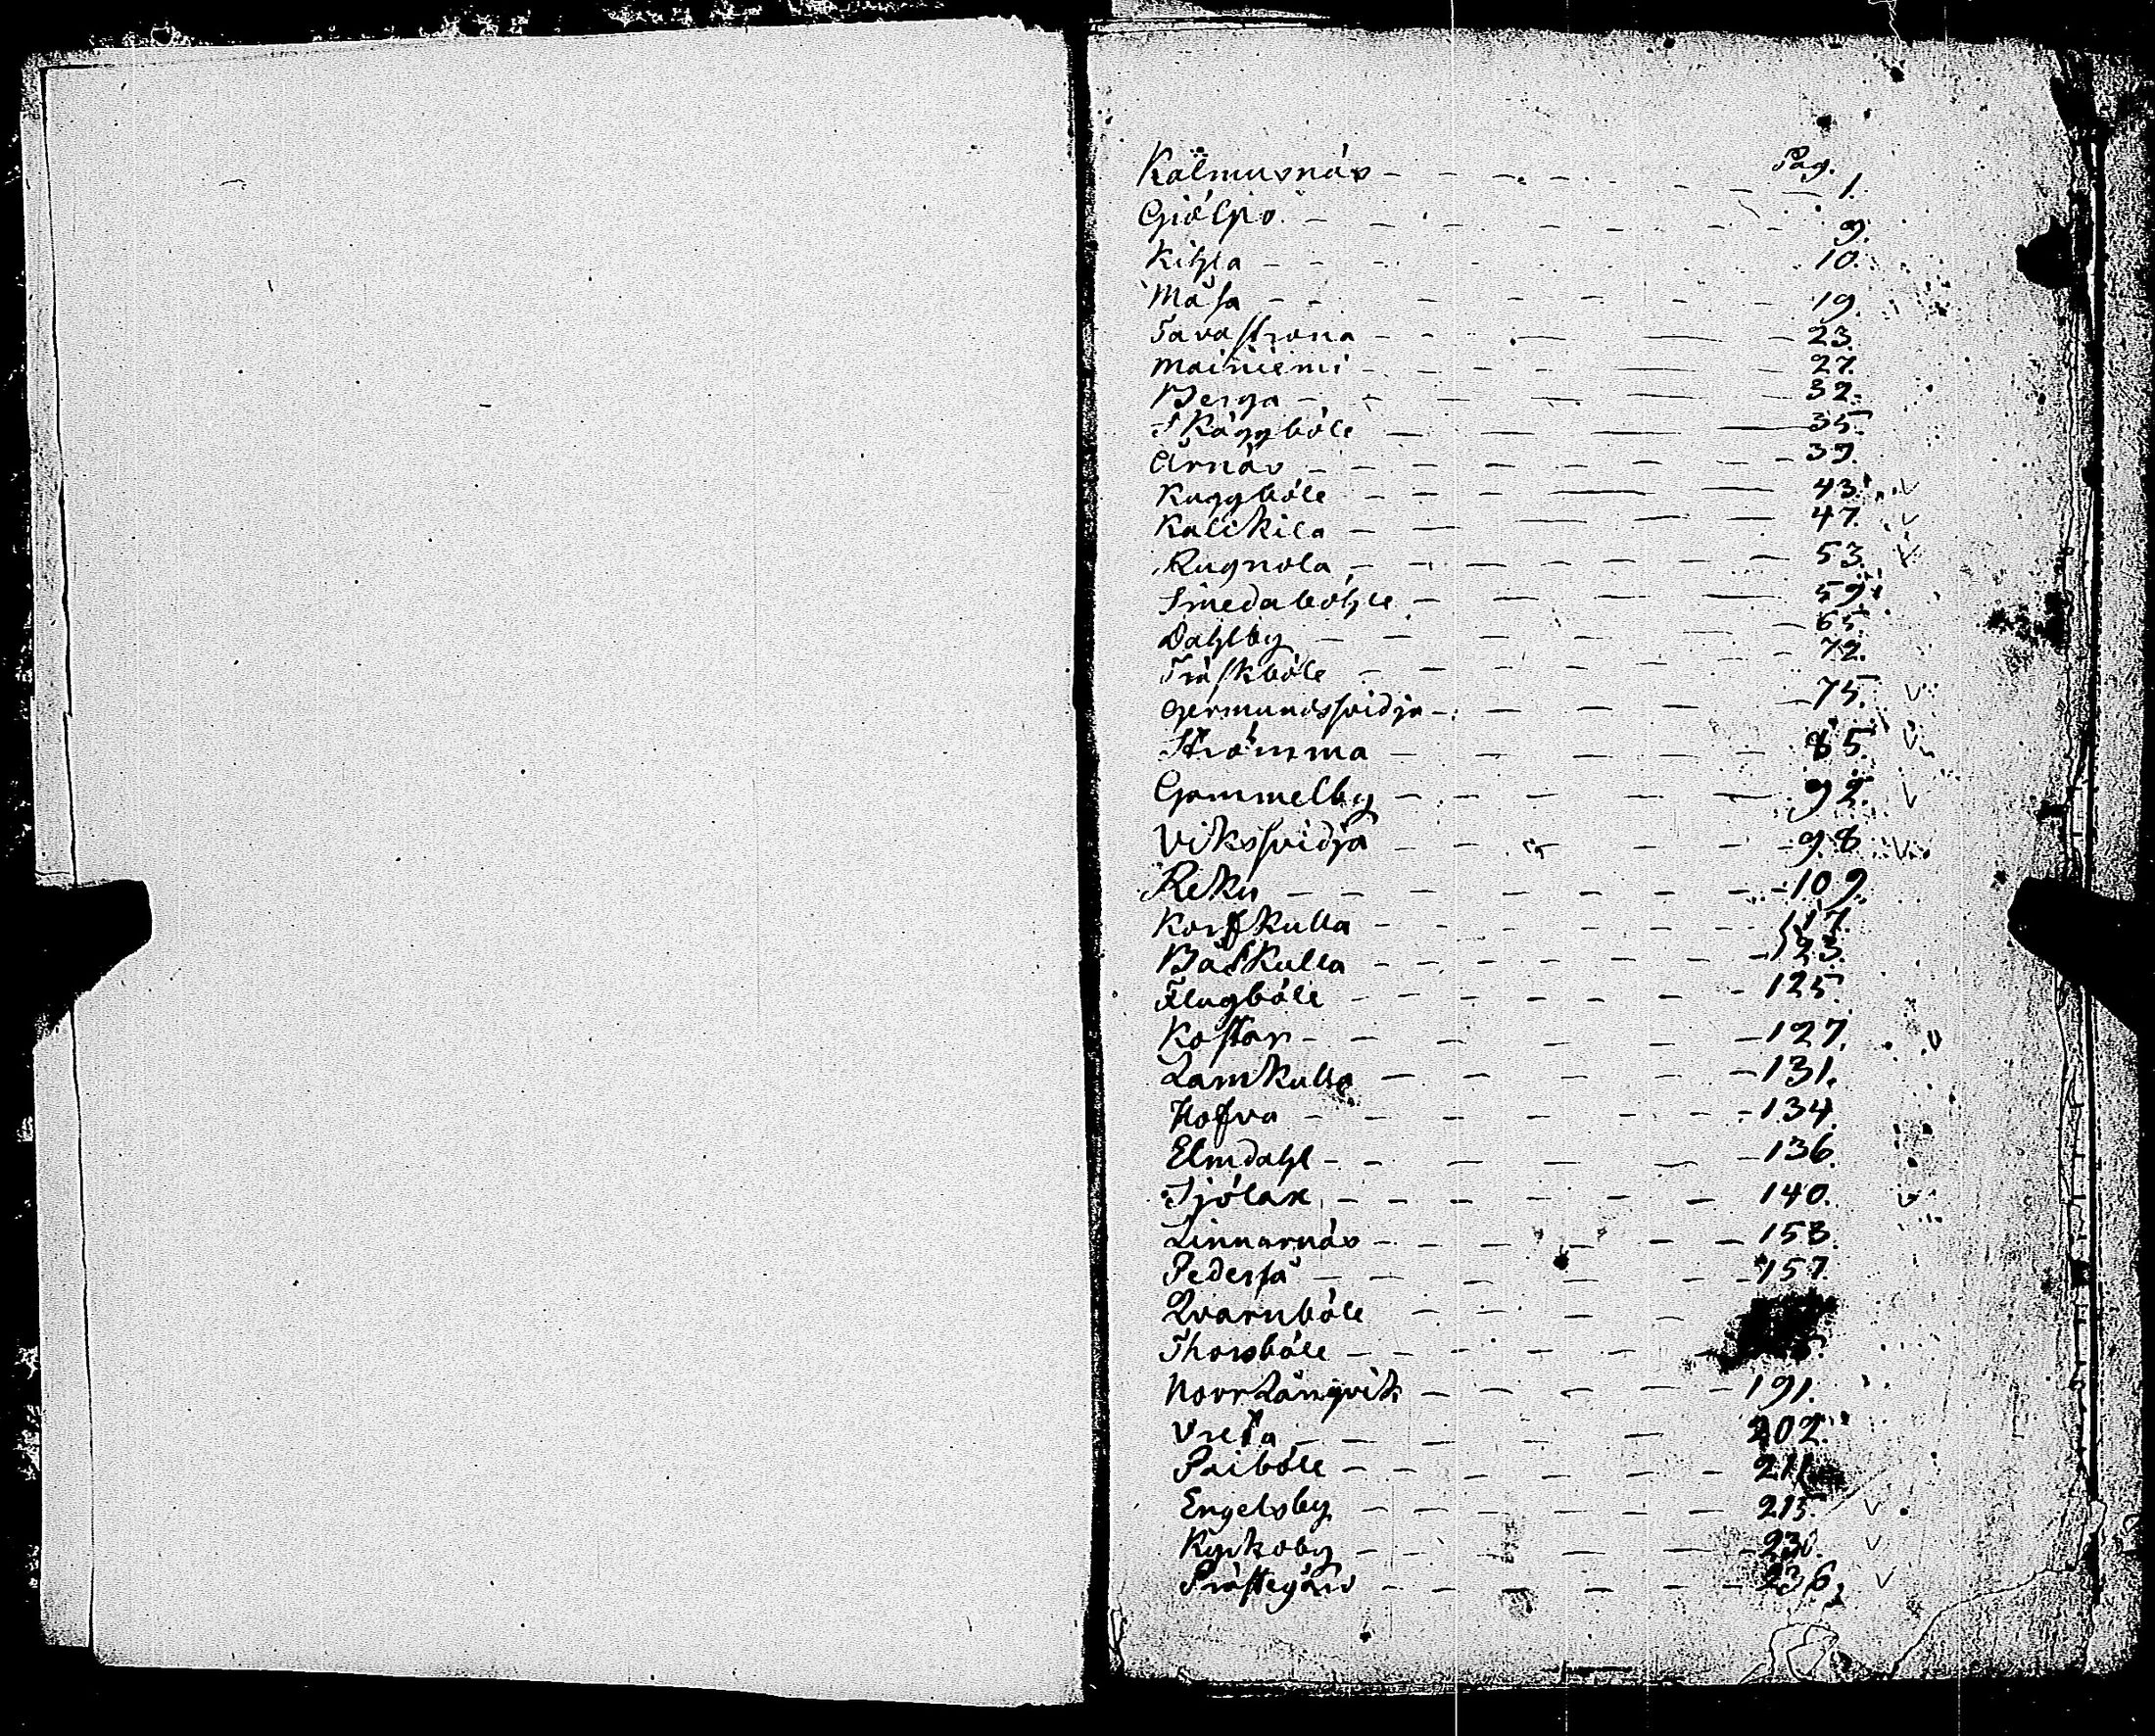 Pag.
Kalmusnäs - - - - - - - 1.
Giälpo. - - - - - - - 9.
Kihla - - - - - - - 10.
Måsa - - - - - - - 19.
Tavastrona - - - - - 23.
Mainiemi - - - - - - 27.
Berga - - - - - - 32.
Skäggböle - - - - - 35.
Årnäs - - - - - - 39.
Kuggböle - - - - - 43. v
Kalikila - - - - - 47. v
Rugnola - - - - - 53. v
Smedaböhle - - - - 59.
Dahlby - - - - - 65.
Träskböle - - - - - 72.
Germundssvidja - - - - 75. v
Strömma - - - - - 85. v
Gammelby - - - - - 92. v
Vikssvidja - - - - - 98. v
Reku - - - - - - 109.
Korskulla - - - - - - 117.
Båskulla - - - - - - 123.
Flugböle - - - - - - 125.
Kostar - - - - - - 127. v
Lamkulla - - - - - 131.
Hofva - - - - - - 134.
Elmdahl - - - - - 136.
Sjölax - - - - - - 140. v
Linnarnäs - - - - - 153.
Pederså - - - - - - 157.
Qvarnböle - - - -
Thorsböle - - - - -
Norrlångvik - - - - - 191.
Vreta - - - - - 202.
Paiböle - - - - - - 211.
Engelsby - - - - - - 215. v
Kyrkoby - - - - - - 230. v
Prästegård - - - - - 236. v